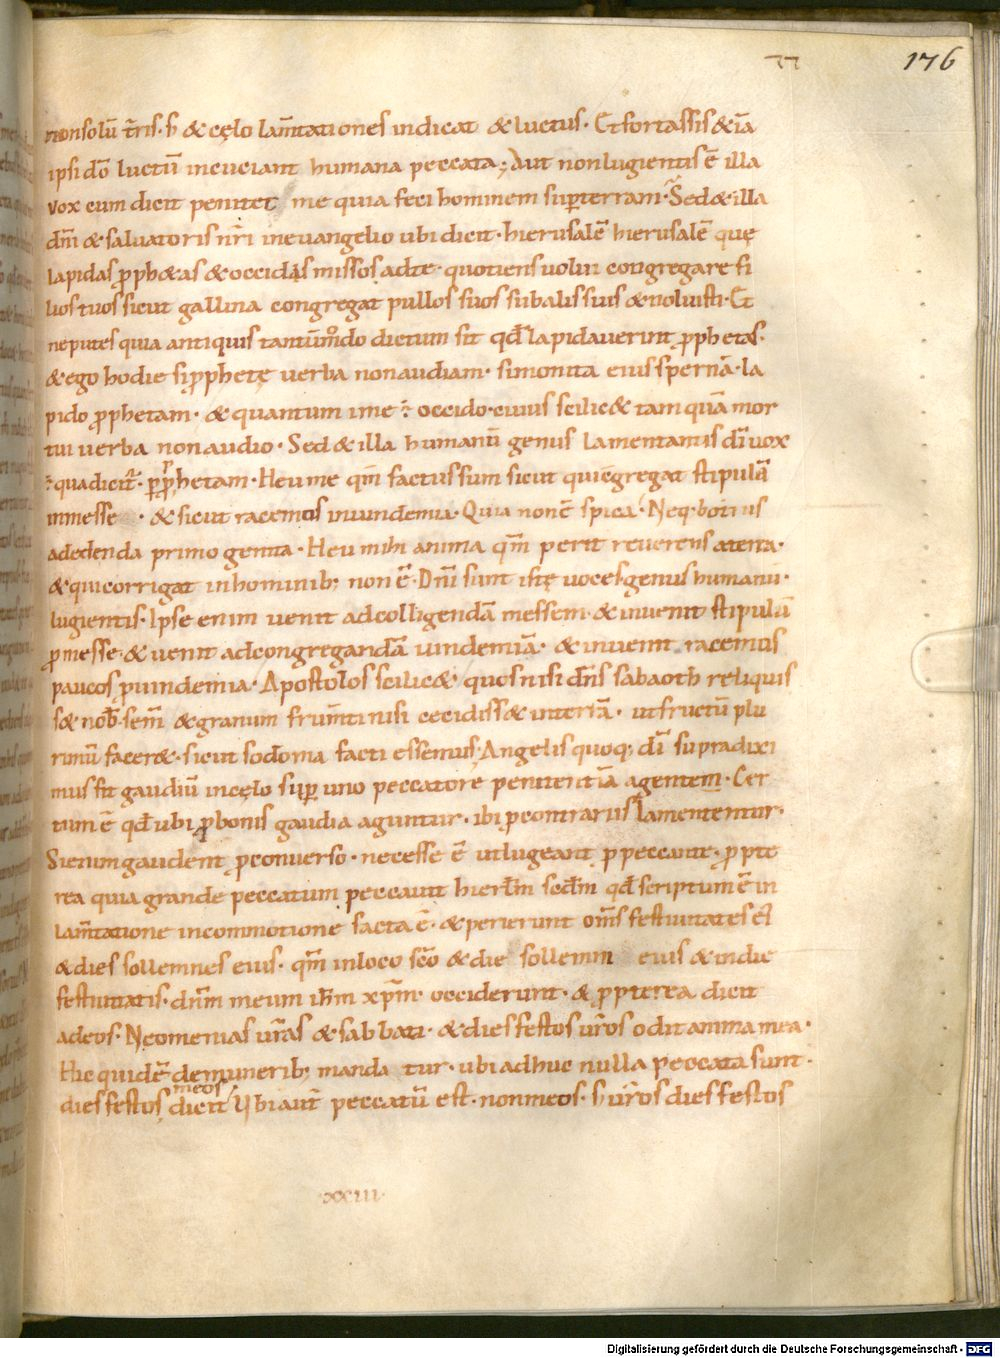 176
non solū tr̄ris · s̄ & cęlo lam̄tationes indicat & luctus · Et fortassis & iā
ipsi dō luctū incuciant humana peccata ; Aut non lugientis ē illa
vox cum dicit penitet me quia feci hominem sup terram · Sed & illa
dn̄i & salvatoris nr̄i in evangelio ubi dicit · hierusalē hierusalē quę
lapidas p̱ph&as & occidis missos ad te · quotiens volui congregare fi
lios tuos sicut gallina congregat pullos suos sub alis suis & noluisti · Et
ne putes quia antiquis tantūmodo dictum sit qd̄ lapidaverint p̱phetas ·
& ego hodie si p̱phetę verba non audiam · si monita eius spernā · la
pido p̱phetam · & quantum in me ÷ occido · cuius scilic& tam quā mor
tui verba non audio · Sed & illa humanū genus lamentantis dn̄i vox
÷ qua dicit̄ · p̱ p̱phetam · Heu me qm̄ factus sum sicut qui cēgregat stipulā
in messe · & sicut racemos in vindemia · Quia non ē spica · Neq · botrus
ad edenda primogenita · Heu mihi anima qm̄ perit reverens a terra ·
& qui corrigat in hominib; non ē · Dn̄i sunt istę voces genus humanū ·
lugientis · Ipse enim venit ad colligendā messem · & invenit stipulā
p̱ messe · & venit ad congregandā vindemiā · & invenit racemos
paucos p̱ vindemia · Apostolos scilic& · quos nisi dn̄s sabaoth reliquis
s& nob̄ · sem̄ & granum frum̄ti nisi cecidiss& in terrā · ut fructū plu
rimū facer& · sicut sodoma facti essemus · Angelis quoq; dī supra dixi
mus fit gaudiū in cęlo sup uno peccatore penitentiā agentem · Cer
tum ē qd̄ ubi p̱ bonis gaudia aguntur · ibi p̱ contrariis lamententur ·
Si enim gaudent p̱ converso · necesse ē ut lugeant p̱ peccante · p̱pte
rea quia grande peccatum peccavit hierl̄m scd̄m qd̄ scriptum ē in
lam̄tatione in commotione facta ē · & perierunt om̄s festivitates ei
& dies sollemnes eius · qm̄ in loco scō & die sollemni eius & in die
festivitatis · dn̄m meum ih̄m xp̄m · occiderunt · & p̱pterea dicit
ad eos · Neomenias vr̄as & sabbati · & dies festos vr̄os odit anima mea ·
Hic quidē de munerib; manda tur · ubi adhuc nulla peccata sunt ·
meos
dies festos dicit ; Ubi aut̄ peccatū est · non meos · s̄ vr̄os dies festos
xxiii ·
Digitalisierung gefördert durch die Deutsche Forschungsgemeinschaft - DFG